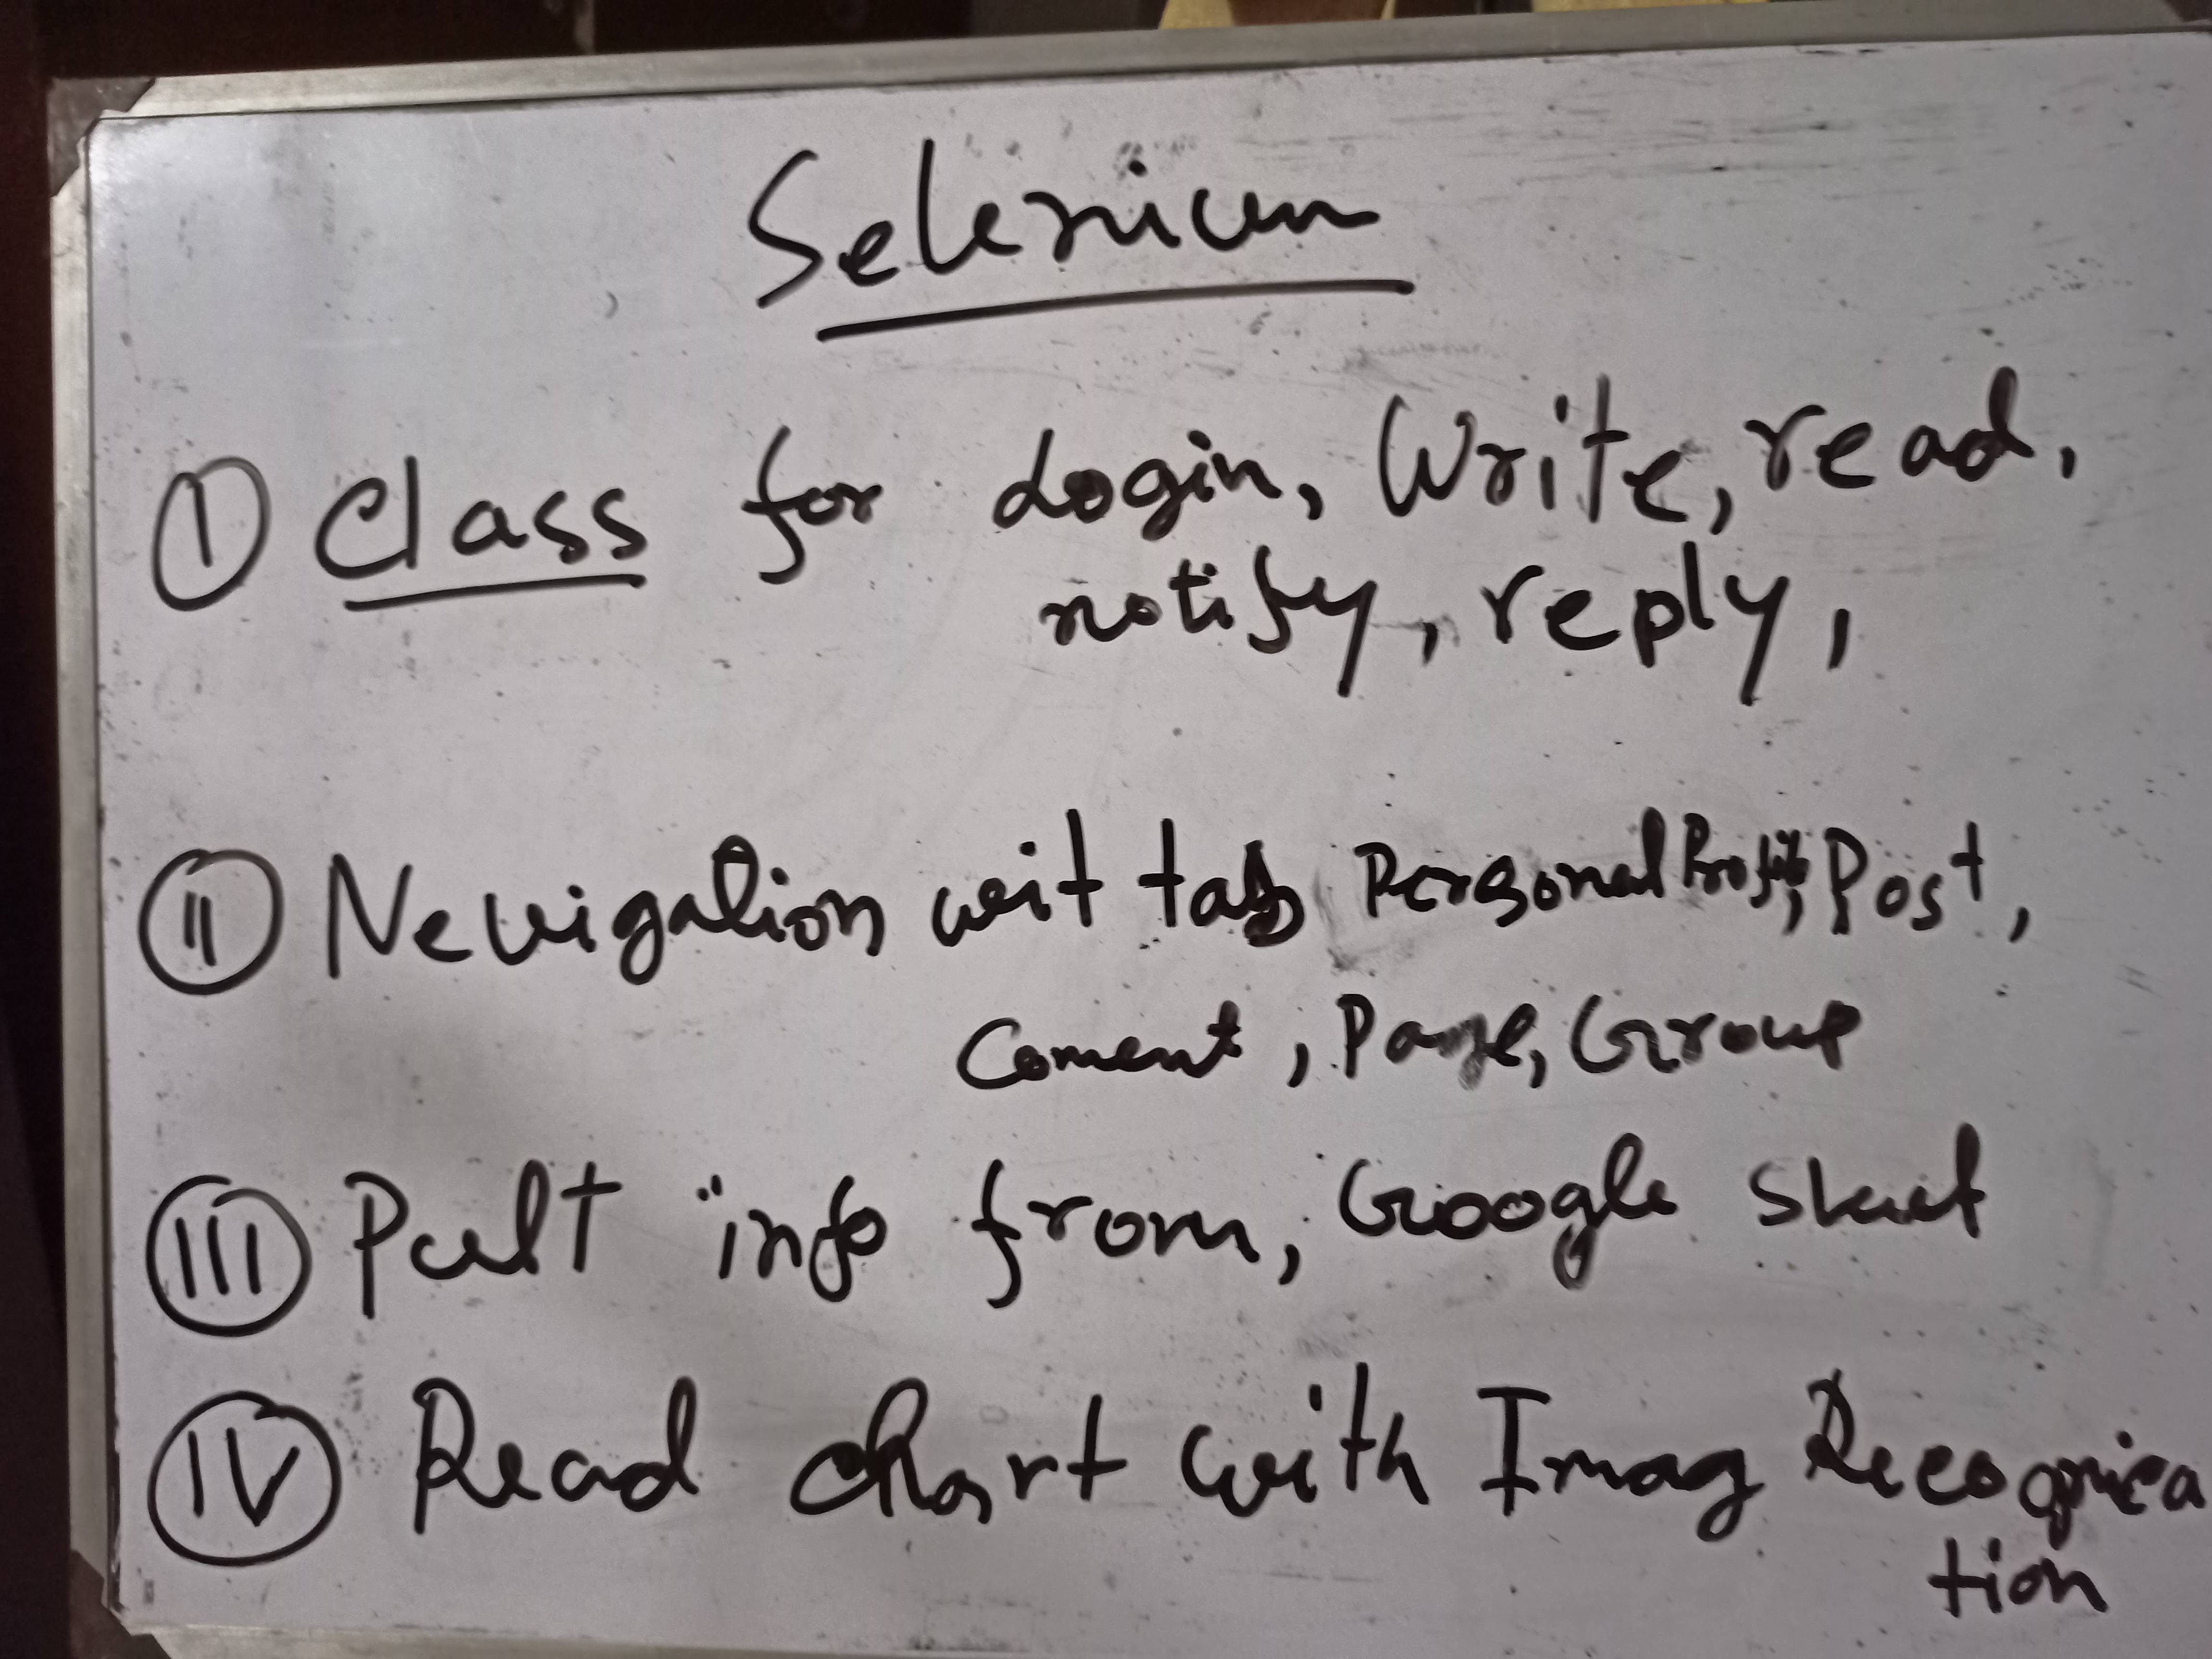 Selenium
I Class for Login, Write, read,
notify, reply,
II Nevigation wit tab Personal Profile, Post,
Coment, Page, Group
III Pult info from, Google
IV Read chart with Imag Recognica
tion